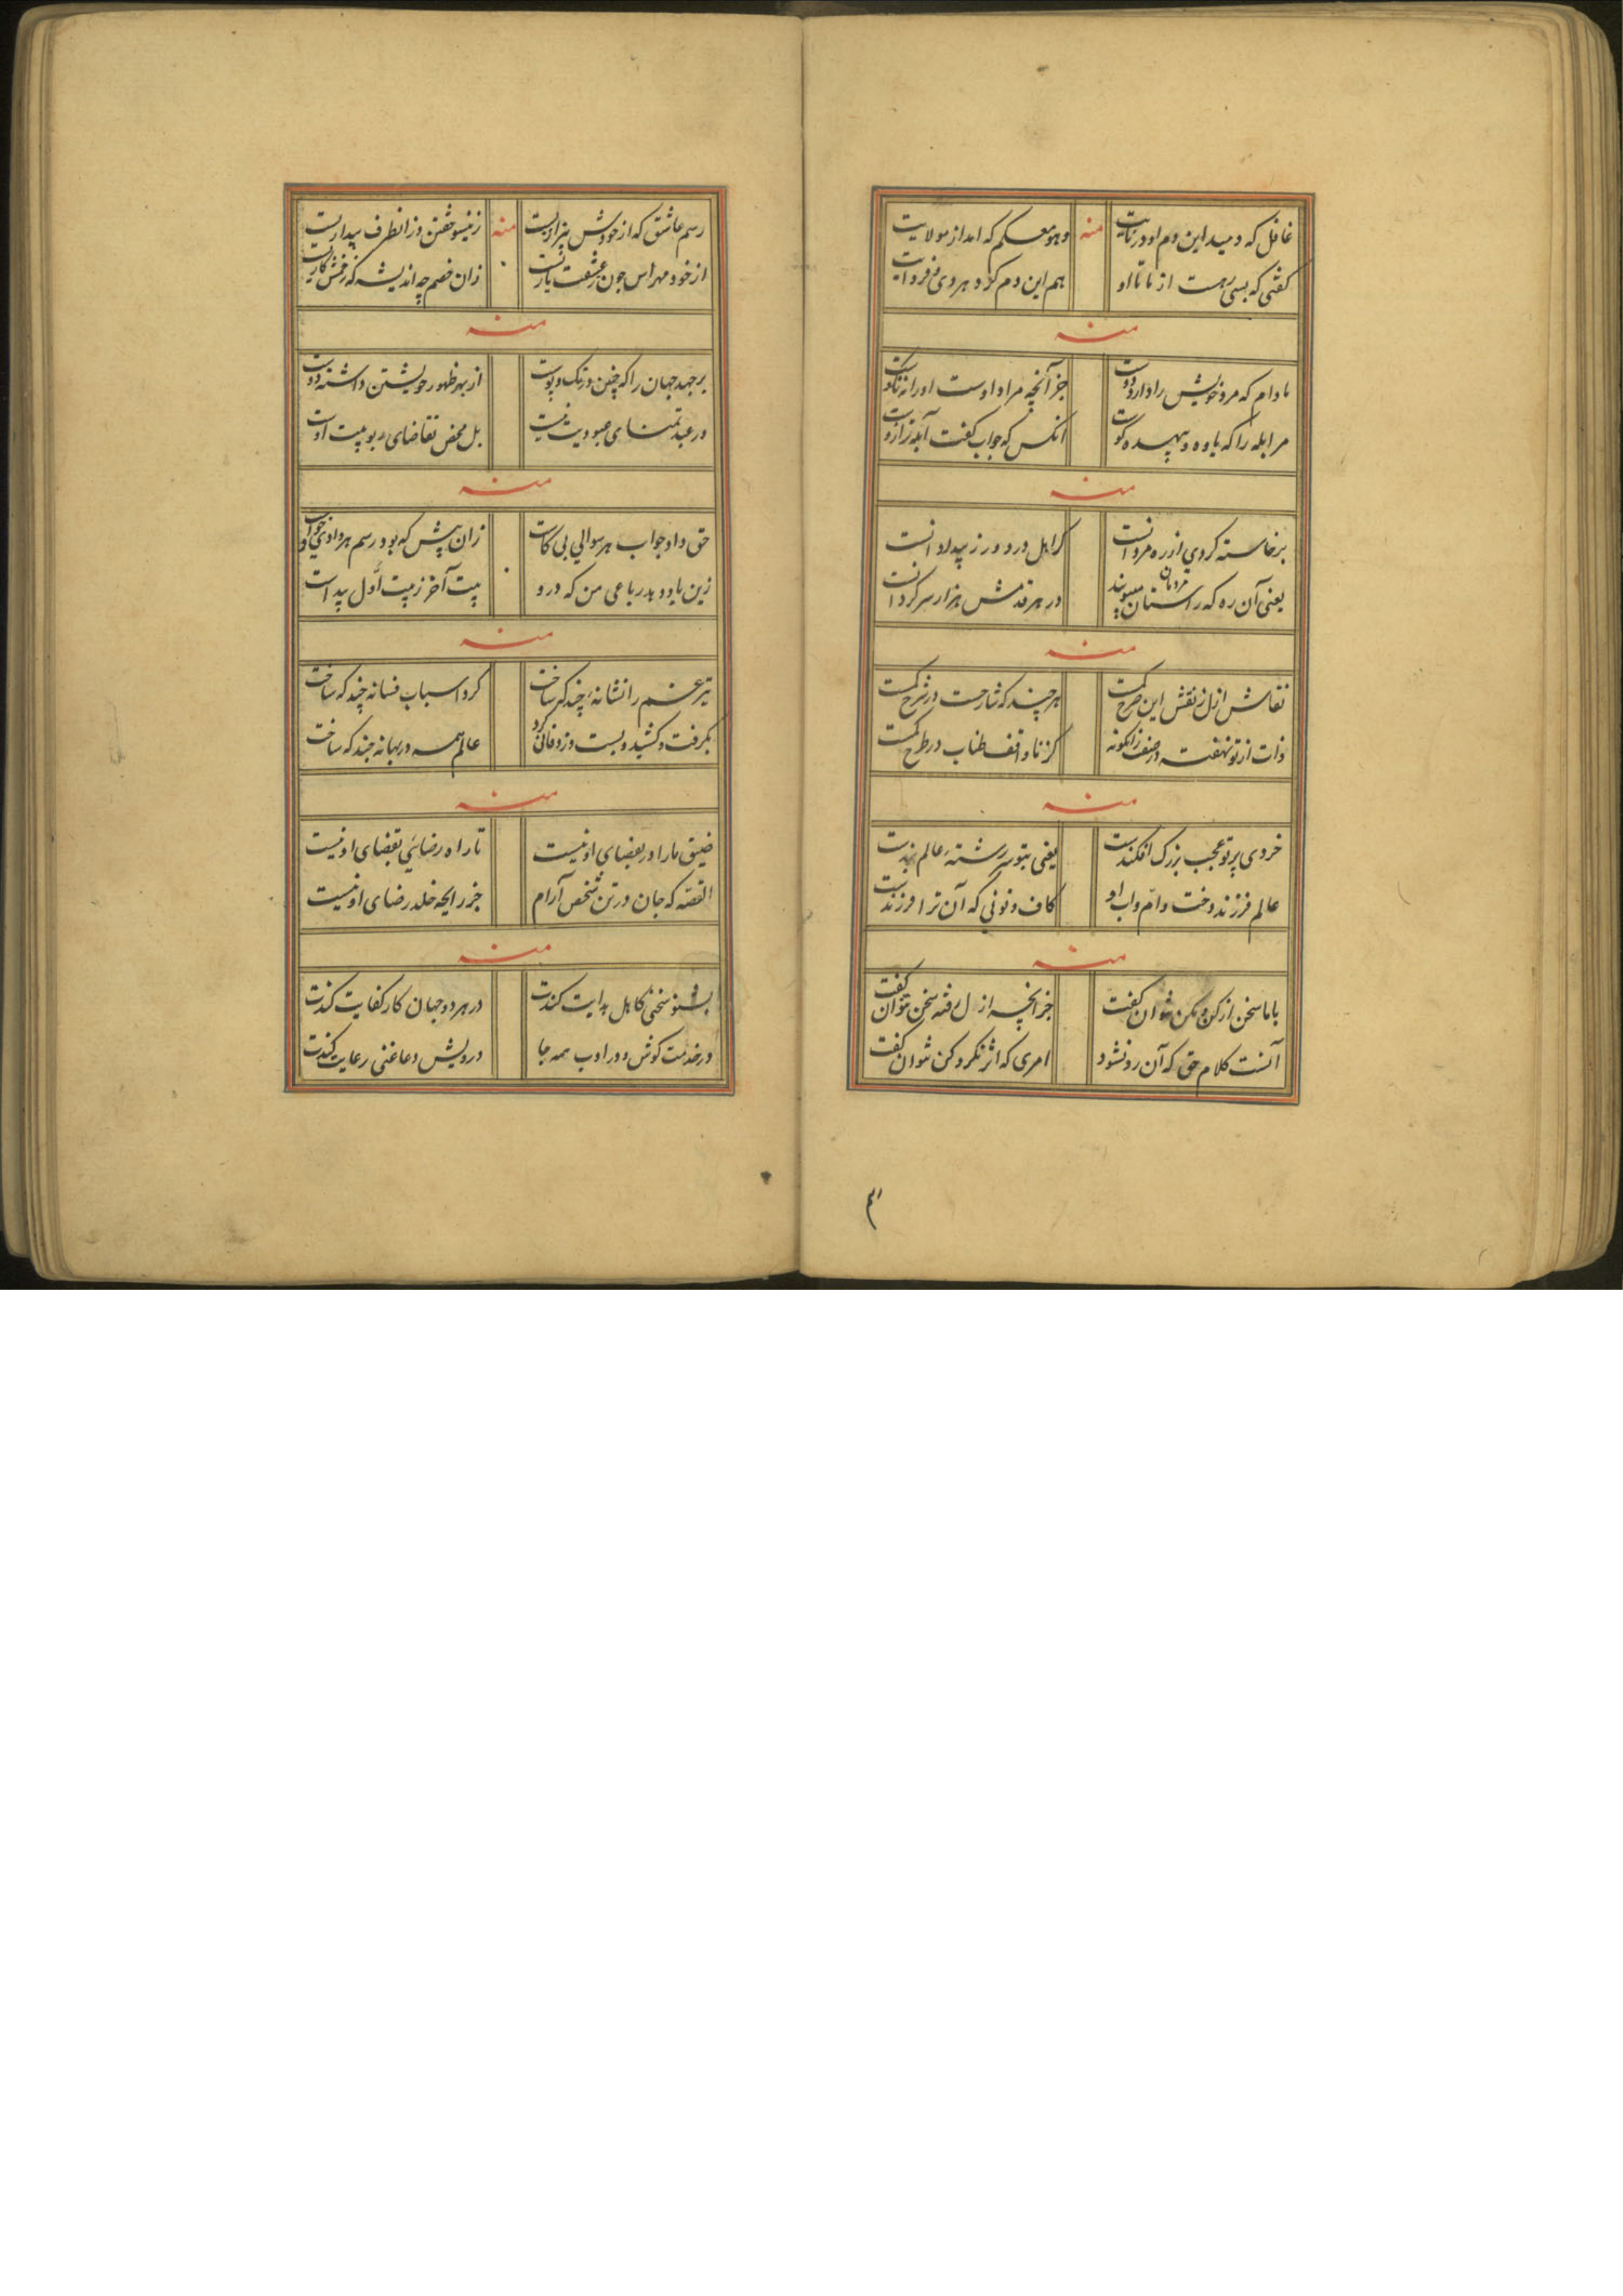 غافل که دمید این دم او در نائیت منه وهو معکم که امد از مولائیت
کفتی که بسی رهست از ما تا او هم این دم کرد و هر وی فردائیت
منه
مادام که مرد خویش را دارد دوست جز آنچه مراد اوست او را نه نکوست
مر ابله را که یاوه و بیهده کوست انکس که جواب کفت ابله تر ازوست
منه
برخاسته کردی از ره مردانست کز اهل درد ورز بیدادانست
یعنی آن ره که راستان مردان میپویند در هر قدمش هزار سرکردانست
منه
نقاش ازل ز نقش این صرح کمست هر چند که شارحست در شرح کمست
ذات از تو نهفت و صنف زانکونه کز نا واقف طناب در طرح کمست
منه
خردی پرتو عجب بزرک افکندست یعنی بتو سررشتهٔ عالم بندست
عالم فرزند وخت و ام و اب او کاف و نونی که آن ترا فرزندست
منه
با ما سخن از کن و مکن نتوان کفت جز انچه از ل رفته سخن نتوان کفت
آنست کلام حق که آن رد نشود امری که اثر نکرد کن نتوان کفت
رسم عاشق که از خودش بیزاریست منه زینسو خفتن وز انطرف بیداریست
از خود مهراس چون ز عشقت یاریست زان خصم چه اندیشه که زخمش کاریست
منه
بر جهد جهان را که چنین در تک و پوست از بهر ظهور خویشتن داشته دوست
در عبد تمنای عبودیت نیست بل محض تقاضای ربوبیت اوست
منه
حق داد جواب هر سوالی بی کاست زان پیش که بود رسم هر دادی خواست
زین یاد و بد رباعی من که درو بیت آخر ز بیت أول پیداست
منه
تیر غم را نشانهٔ چند که ساخت کرد اسباب فسانه چند که ساخت
بکرفت و کشید و بست وزد فانی کرد عالم همه در بهانه چند که ساخت
منه
ضیق ما را در بقضای او نیست تا راه رضائی بقضای او نیست
القصه که جان در تن شخص آرام جز رایحه خلد رضای او نیست
منه
بشنو سخنی کاهل هدایت کندت در هر دو جهان کار کفایت کندت
در خدمت کوش و در ادب همه جا درویش دعا غنی رعایت کندت